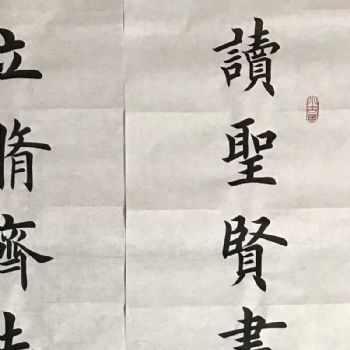 讀聖賢書
立脩齊